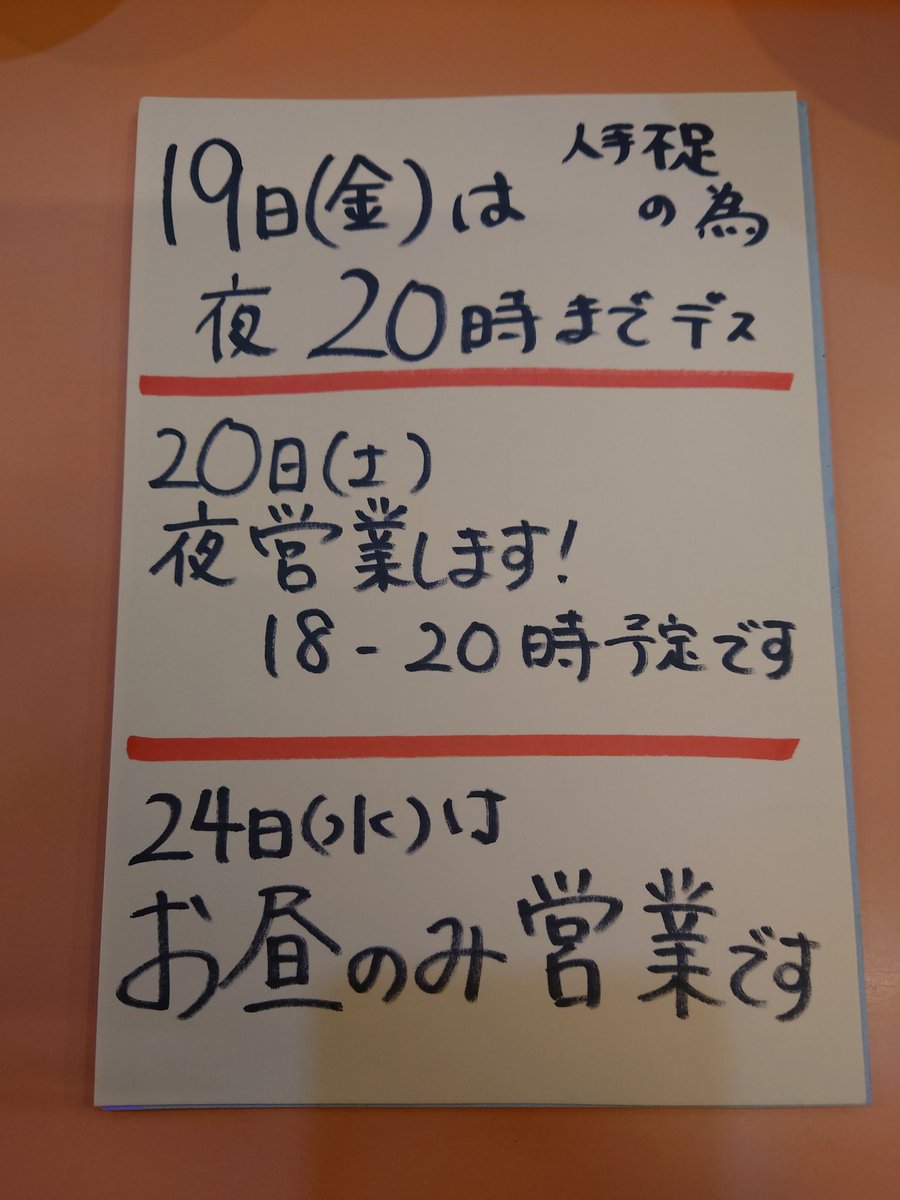 19日(金)は
人手不足
の為
夜 20時までデス
20日(土)
夜営業します!
18-20時予定です
24日(水)は
お昼のみ営業です